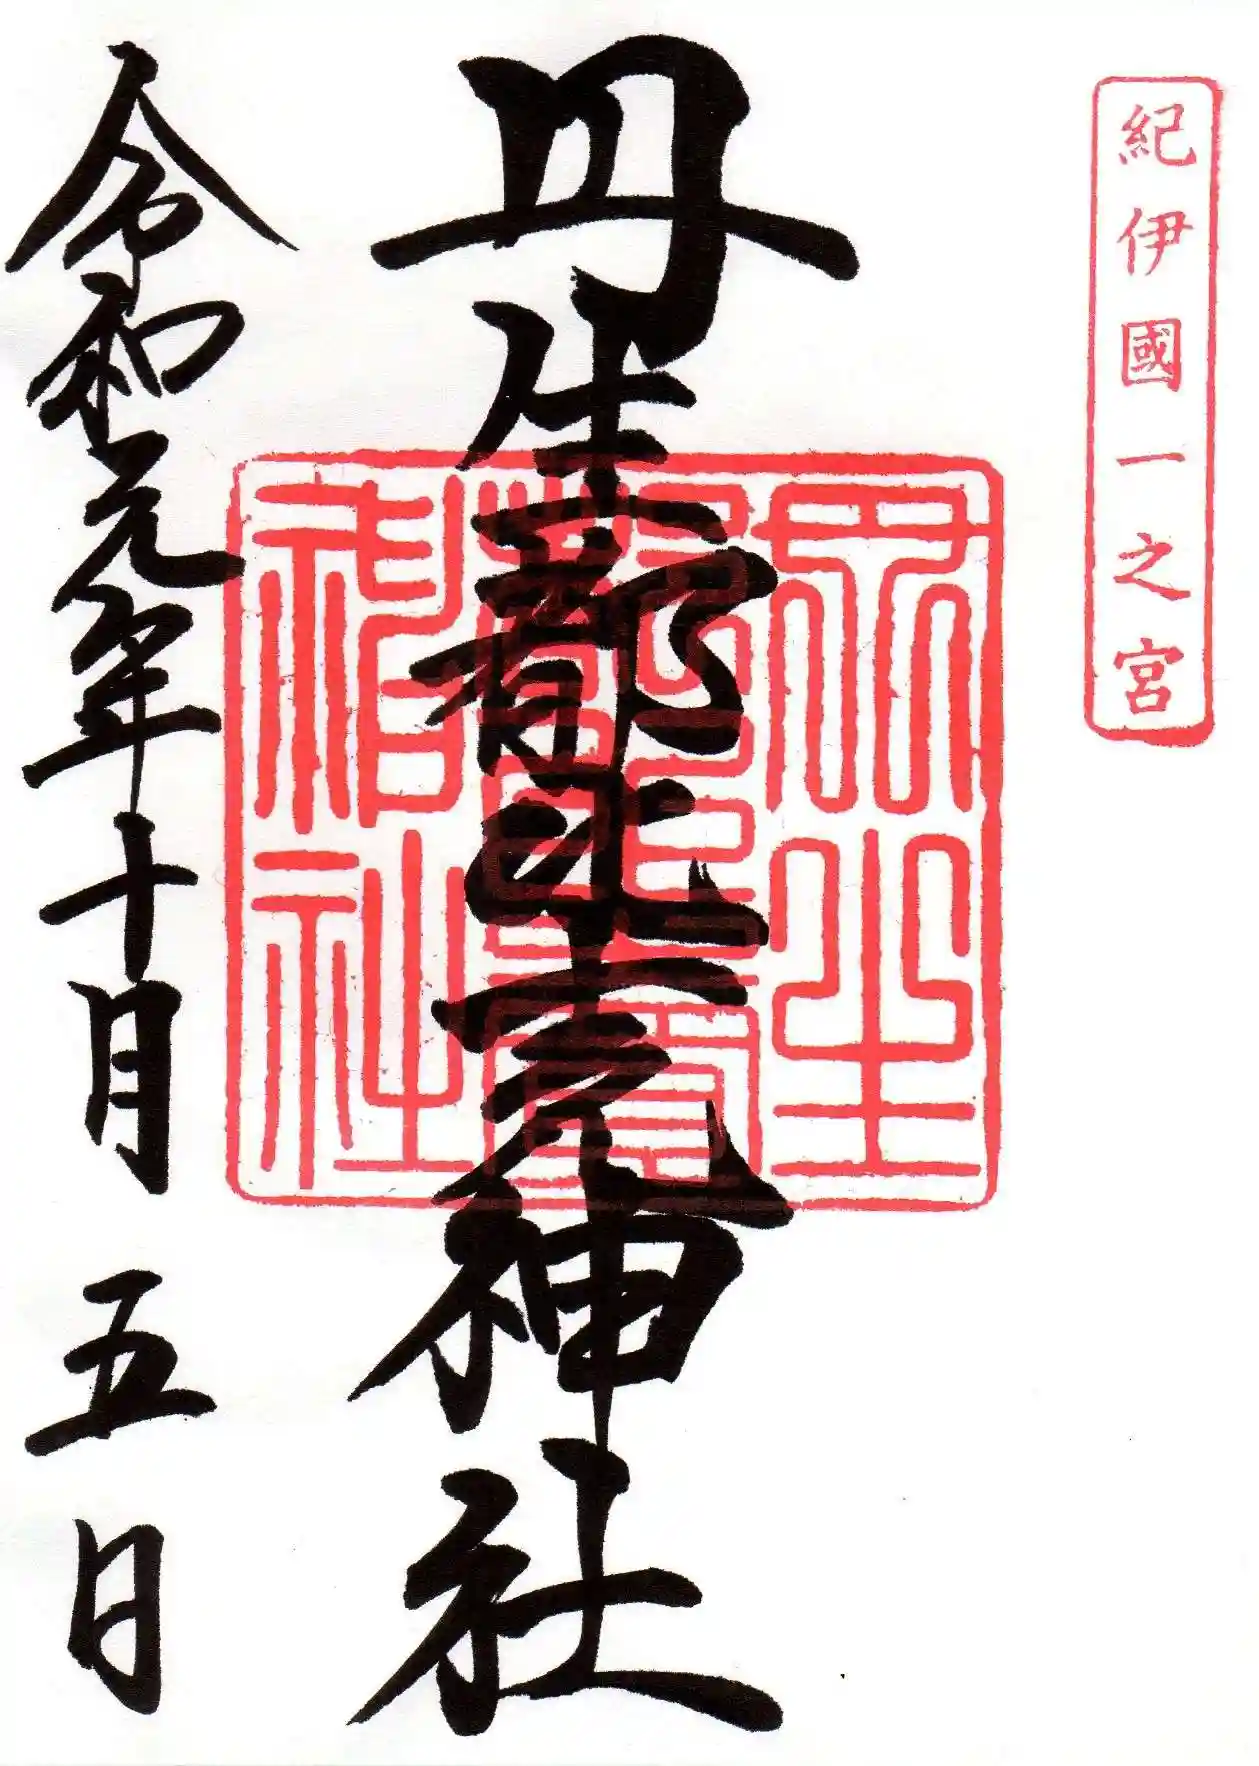 紀伊國一之宮
丹生都比売神社
丹生
都比賣
神社
令和元年十月五日